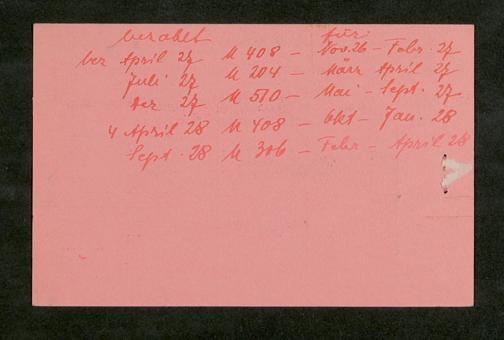 bezahlt für:
bez April 27 M 408 — Nov. 26 — Febr. 27
Juli 27 M 204 — März April 27
Dez 27 M 510 — Mai — Sept. 27
4 April 28 M 408 — Okt — Jan. 28
Sept. 28 M 306 — Febr — April 28